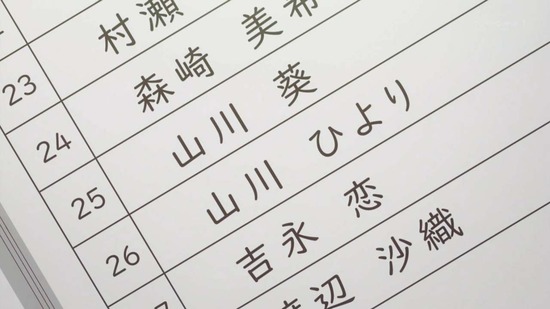 23 村瀬
24 森崎 美希
25 山川 葵
26 山川 ひより
吉永 恋
渡辺 沙織